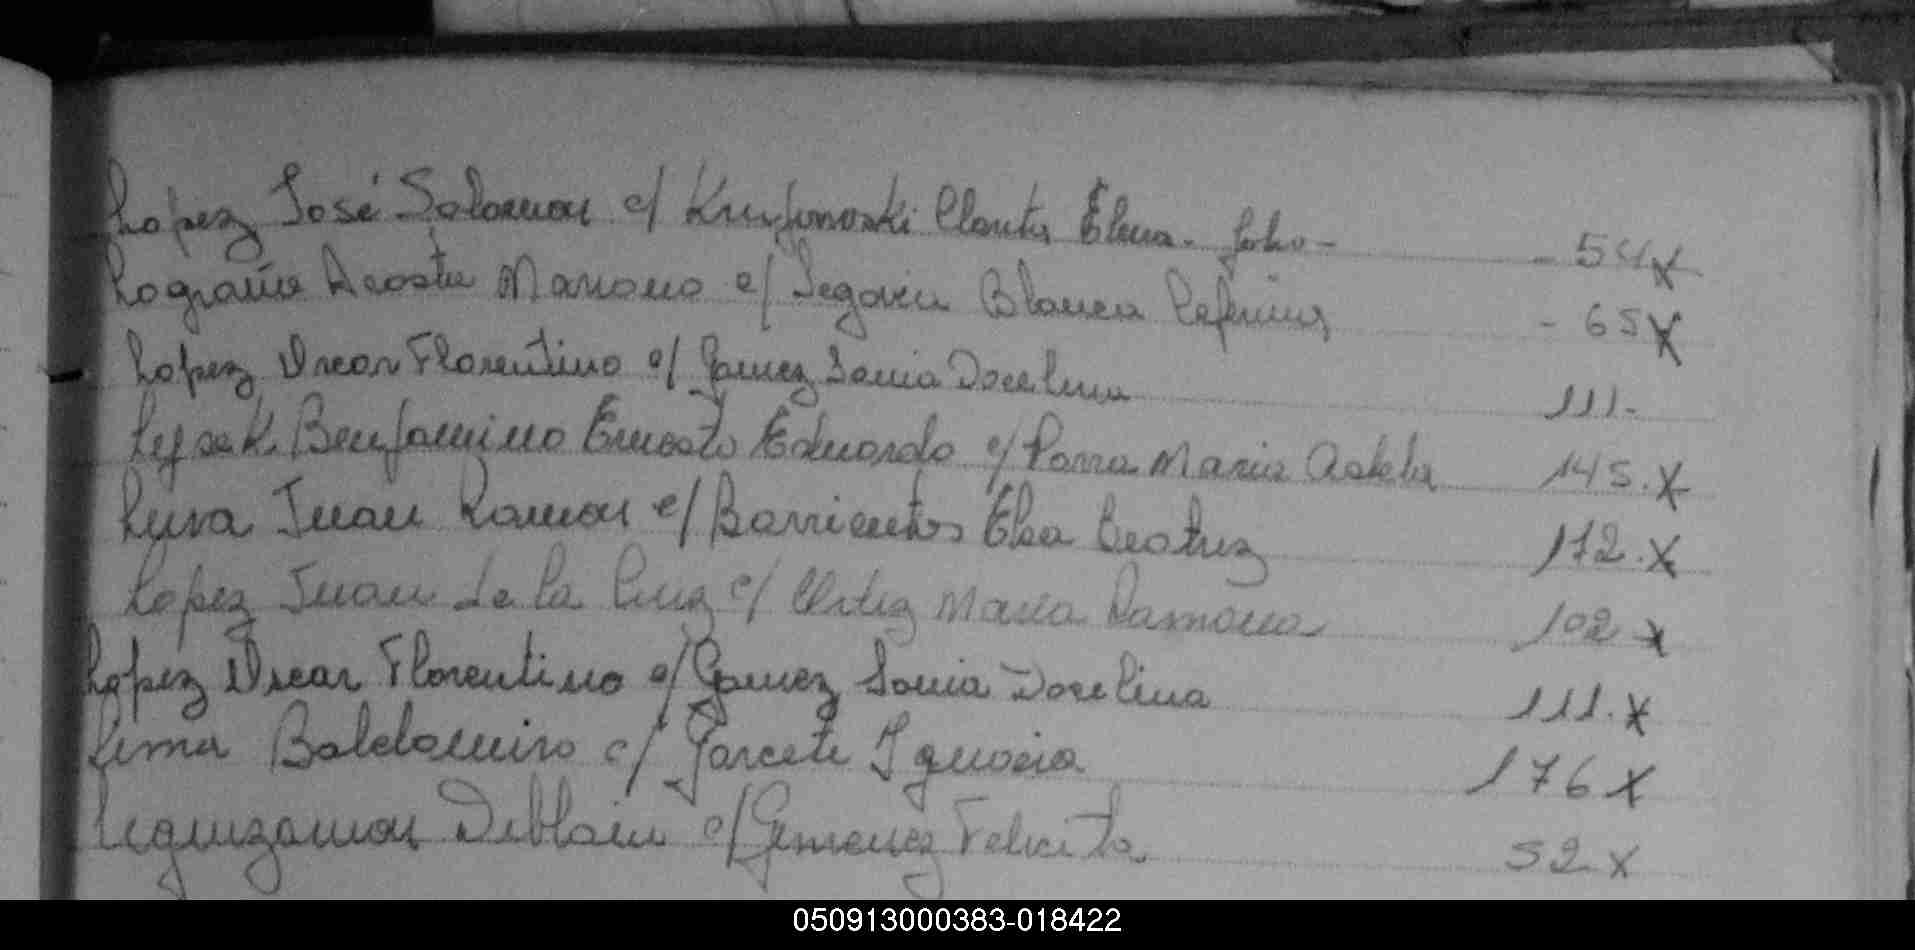 Lopez José Salomon c/ Elena. folio - - 54 X
Acosta Mariano c/ Segovia Blanca Ceferina - 65 X
Lopez Oscar Florentino c/ Gamez Sonia Jocelina 111.
Benjamino Ernesto Eduardo c/ Parra Maria Adela 145. X
Juan Ramon c/ Barrientos Elsa Beatriz 172. X
Lopez Juan de la Cruz c/ Maria Ramona 102 X
Lopez Oscar Florentino c/ Gamez Sonia Jocelina 111. X
Lema Baldomiro c/ Garcete Ignacia 176 X
Leguizamon c/ Gimenez Felicita 52 X
050913000383-018422